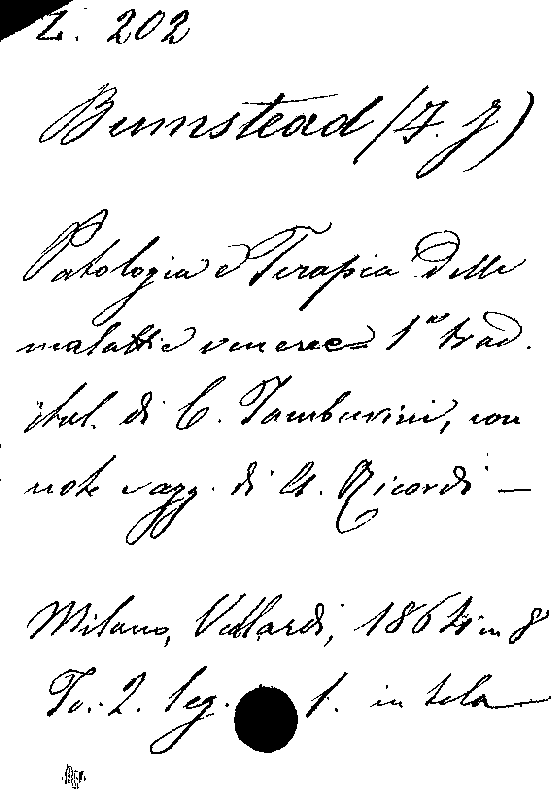 Z. 202
Bumstead (F. J)
Patologia e Terapia delle
malattie veneree 1ª trad.
ital. di C. Tamburini, con
note e agg. di A. Ricordi —
Milano, Vallardi, 1864 in 8°
To. 2. leg. 1. in tela